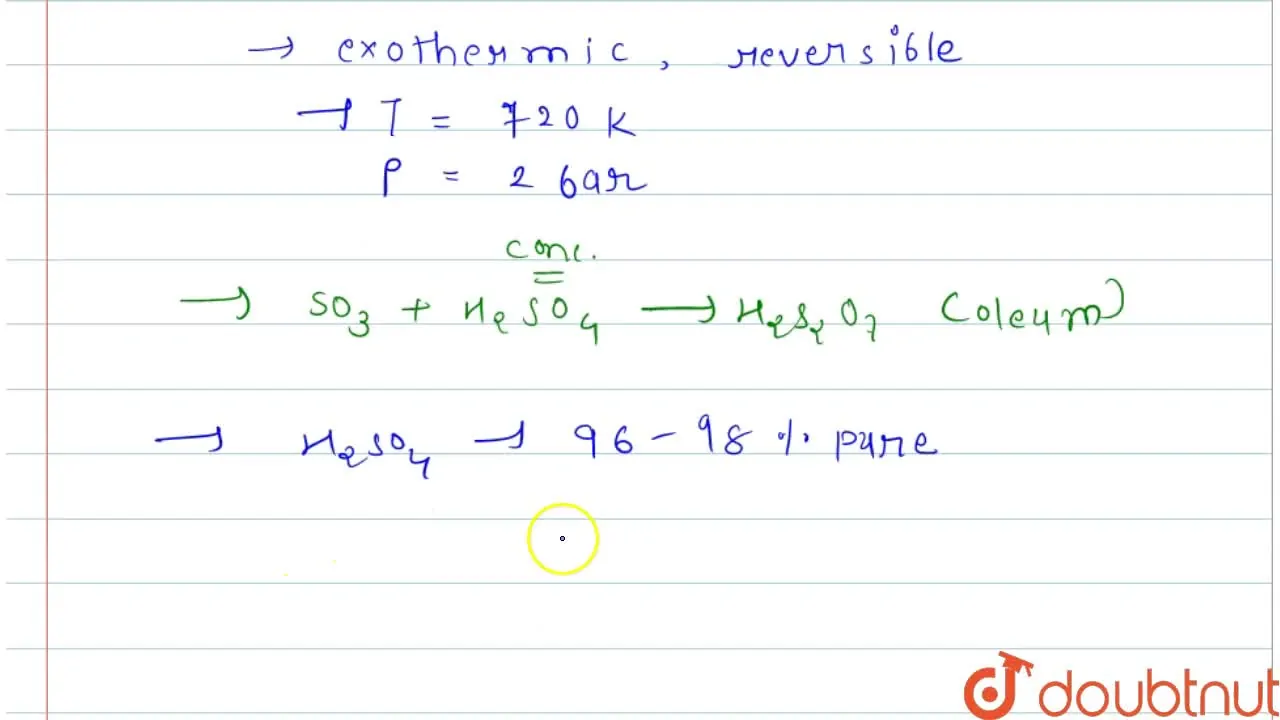 → exothermic, reversible
→ T = 720 K
P = 2 bar
conc.
→ SO₃ + H₂SO₄ → H₂S₂O₇ (oleum)
→ H₂SO₄ → 96 - 98 % pure
doubtnut